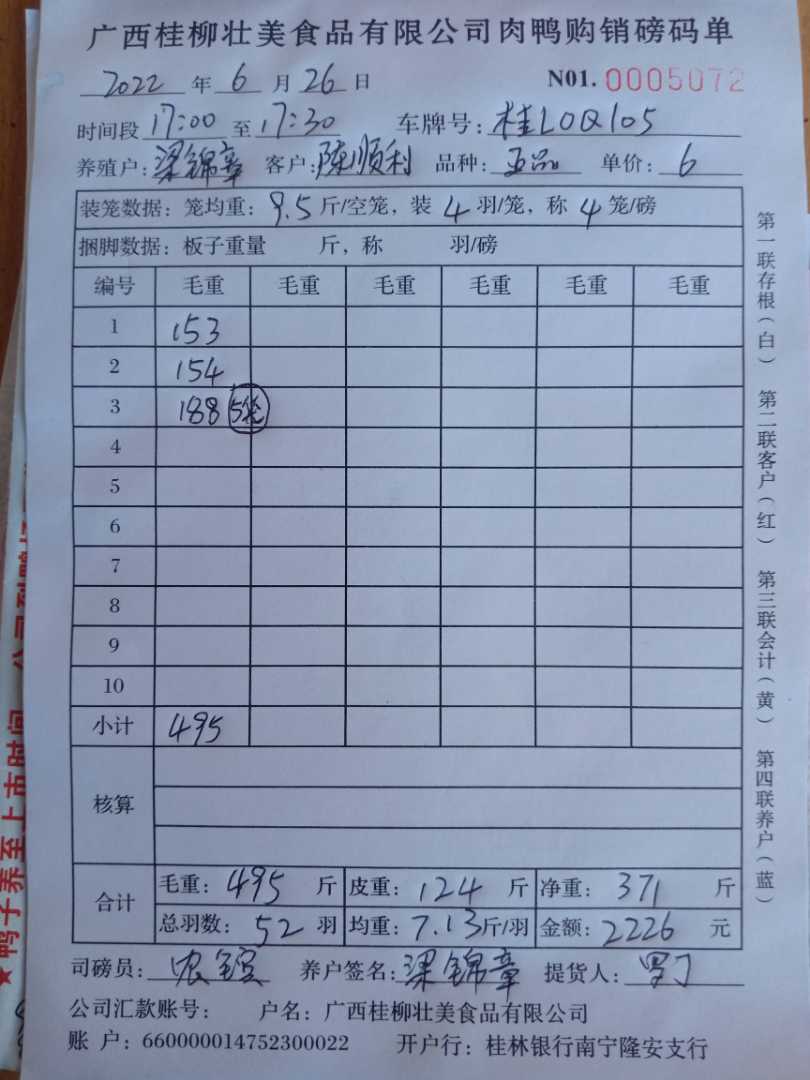 广西桂柳壮美食品有限公司肉鸭购销磅码单
2022 年 6 月 26 日 N01. 0005072
时间段 17:00 至 17:30 车牌号: 桂L0Q105
养殖户: 梁锦章 客户: 陈顺利 品种: 正品 单价: 6
装笼数据: 笼均重: 9.5 斤/空笼, 装 4 羽/笼, 称 4 笼/磅
捆脚数据: 板子重量 斤, 称 羽/磅
编号 毛重 毛重 毛重 毛重 毛重 毛重
1 153
2 154
3 188 5笼
4
5
6
7
8
9
10
小计 495
核算
合计 毛重: 495 斤 皮重: 124 斤 净重: 371 斤
总羽数: 52 羽 均重: 7.13 斤/羽 金额: 2226 元
司磅员: 养户签名: 梁锦章 提货人:
公司汇款账号: 户名: 广西桂柳壮美食品有限公司
账 户: 660000014752300022 开户行: 桂林银行南宁隆安支行
第一联存根(白) 第二联客户(红) 第三联会计(黄) 第四联养户(蓝)
★鸭子养至上市时间